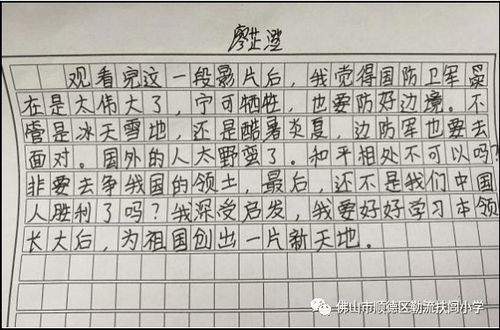 廖芷澄
观看完这一段影片后，我觉得国防卫军实
在是太伟大了，宁可牺牲，也要防好边境。不
管是冰天雪地，还是酷暑炎夏，边防军也要去
面对。国外的人太野蛮了。和平相处不可以吗？
非要去争我国的领土，最后，还不是我们中国
人胜利了吗？我深受启发，我要好好学习本领
长大后，为祖国创出一片新天地。
佛山市顺德区勒流扶闾小学